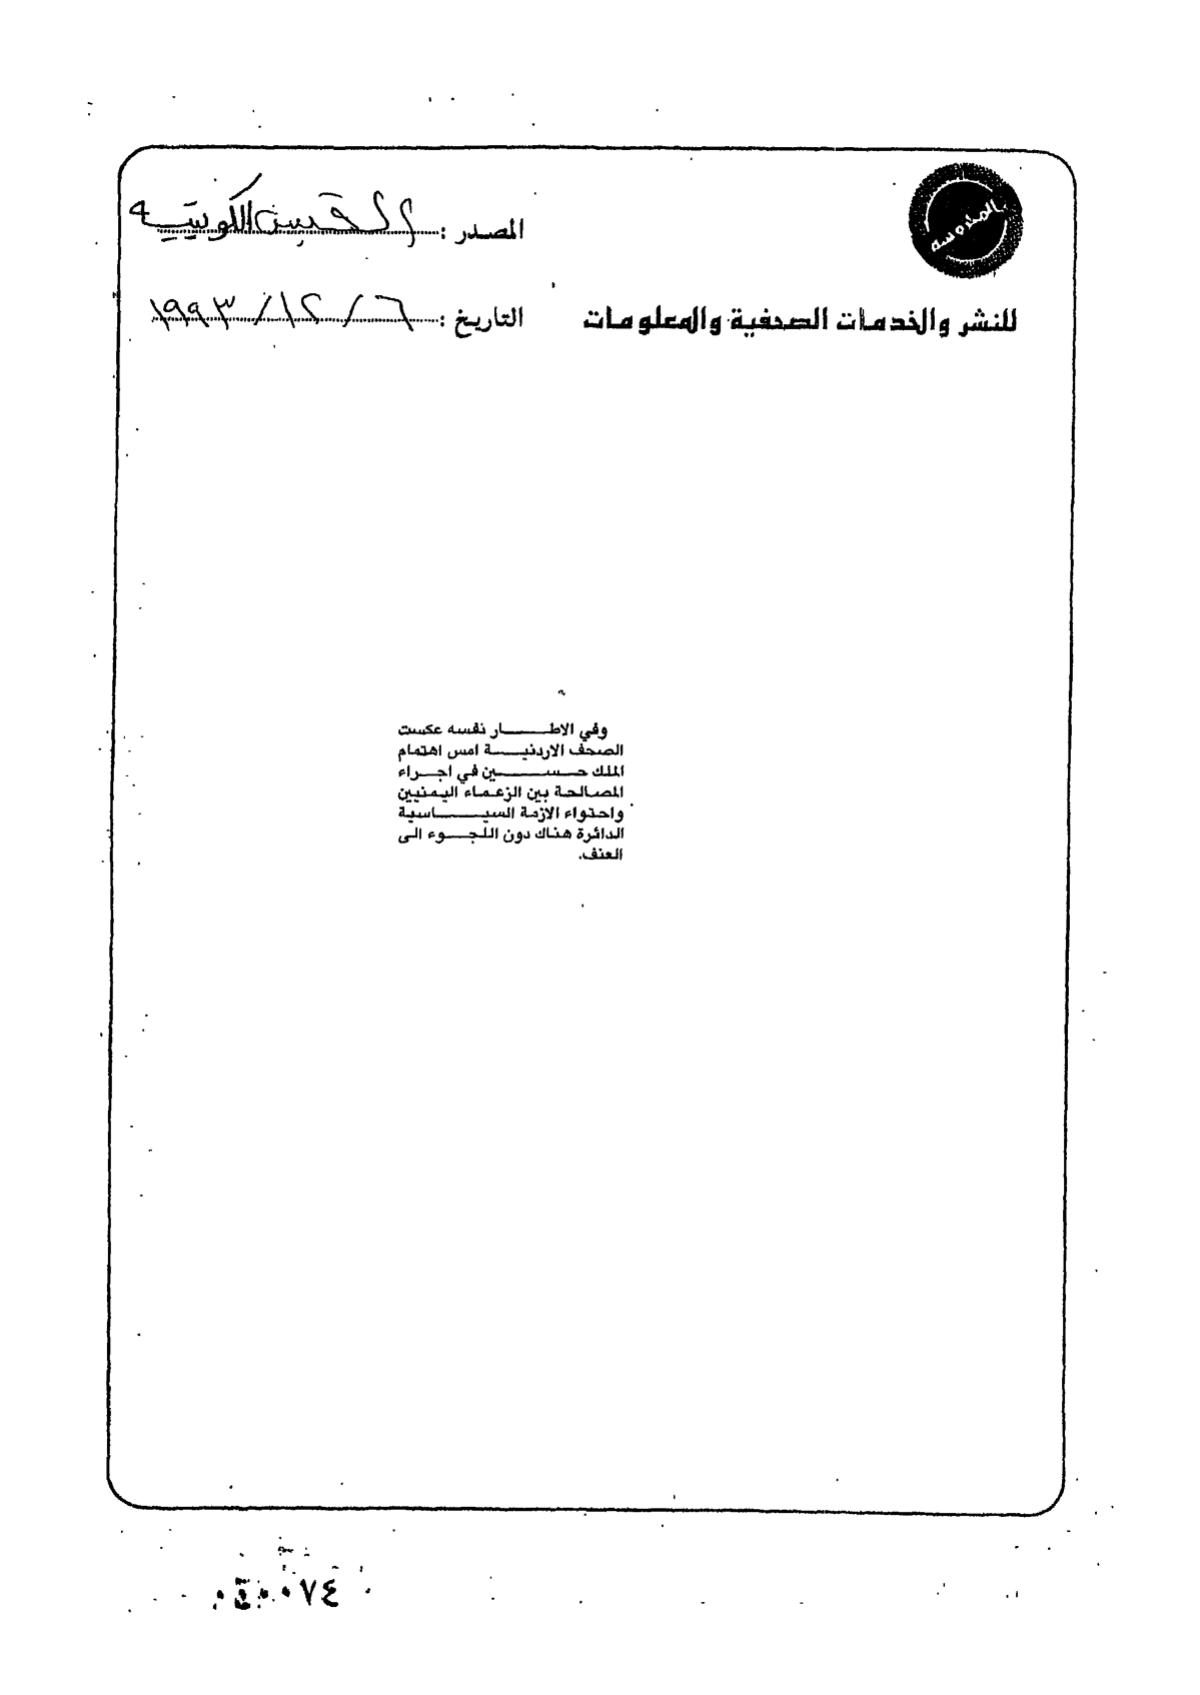 المصدر : القبس الكويتيه
للنشر والخدمات الصحفية والمعلومات
التاريخ : ٦ / ١٢ / ١٩٩٣
وفي الاطار نفسه عكست
الصحف الاردنية امس اهتمام
الملك حسين في اجراء
المصالحة بين الزعماء اليمنيين
واحتواء الازمة السياسية
الدائرة هناك دون اللجوء الى
العنف.